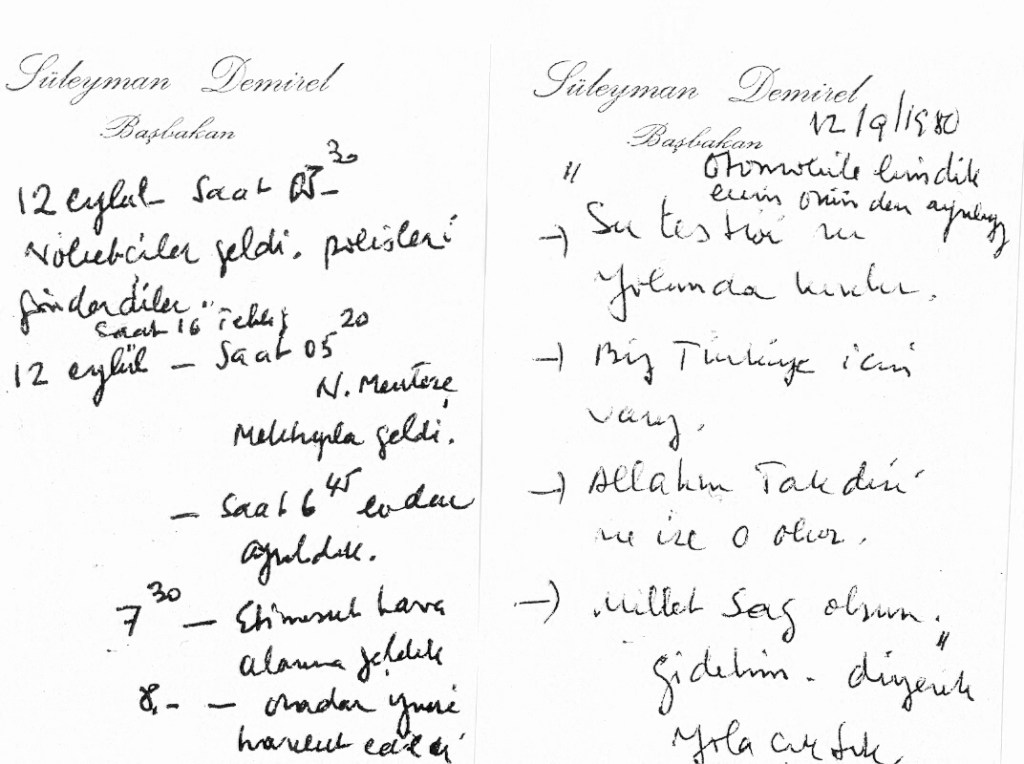 Süleyman Demirel
Başbakan
12 eylül saat 05 30
Nöbetciler geldi. polisleri
gönderdiler.
Saat 16
12 eylül — Saat 05 20
N. Menteşe
Mektupla geldi.
— Saat 6 45 evden
ayrıldık.
7 30 — Etimesut hava
alanına geldik
8.- — oradan
hareket edildi
Süleyman Demirel
Başbakan
12/9/1980
Otomobile bindik
evin önünden
" → Su testisi su
yolunda kırılır.
→ Biz Türkiye için
varız.
→ Allahın Takdiri
ne ise o olur.
→ Millet Sağ olsun.
gidelim - " diyerek
yola çıktık.